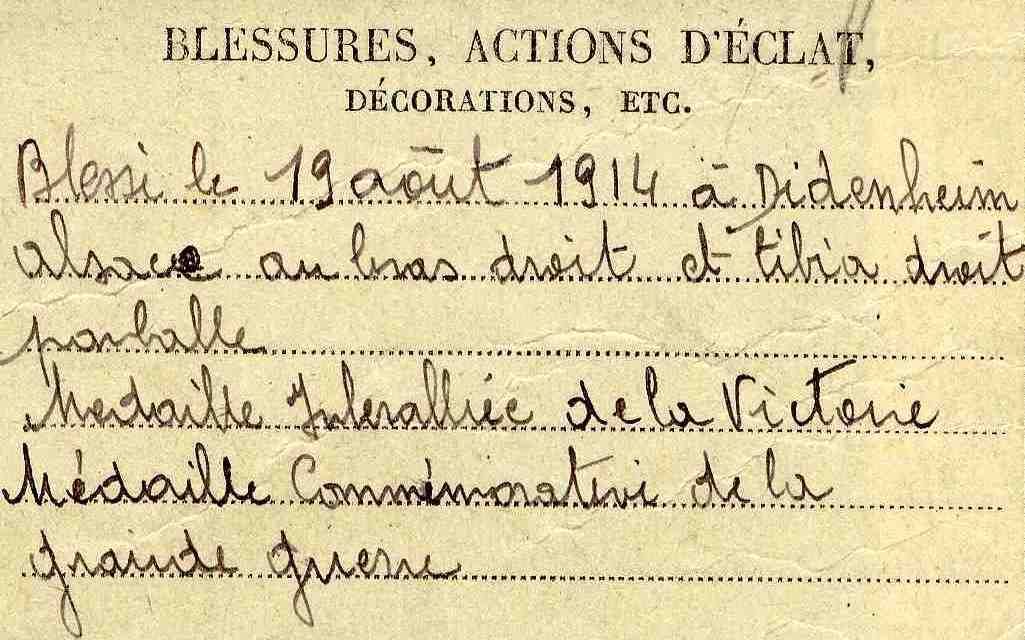 BLESSURES, ACTIONS D'ÉCLAT,
DÉCORATIONS, ETC.
Blessé le 19 août 1914 à Didenheim
Alsace au bras droit et tibia droit
par balle
Médaille Interalliée de la Victoire
Médaille Commémorative de la
grande guerre